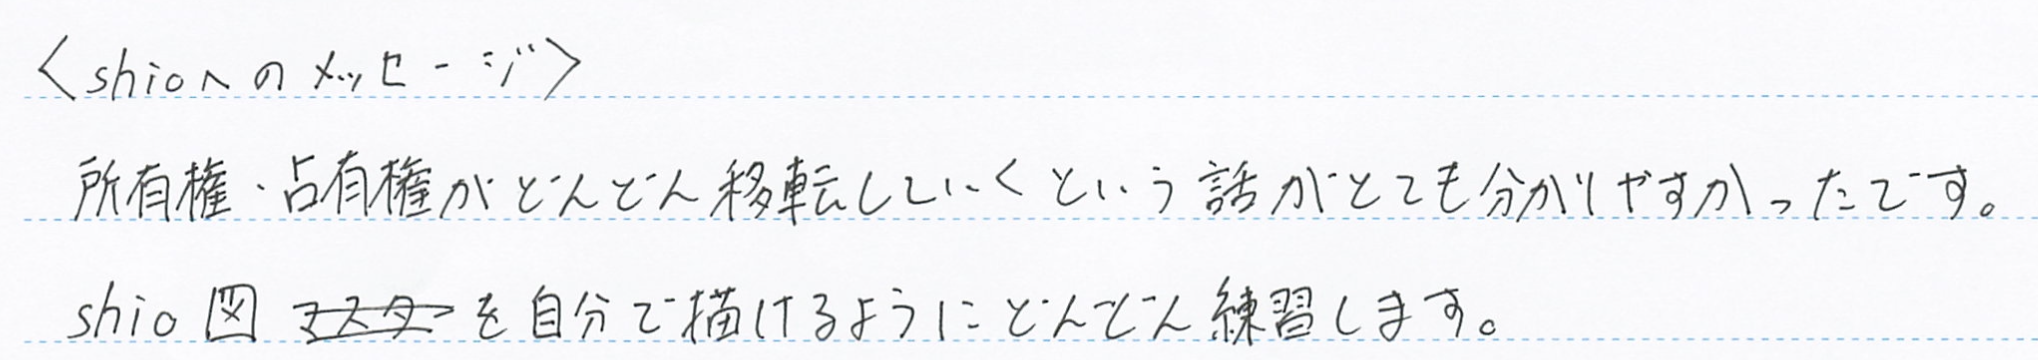 〈shioへのメッセージ〉
所有権・占有権がどんどん移転していくという話がとても分かりやすかったです。
shio図マスターを自分で描けるようにどんどん練習します。